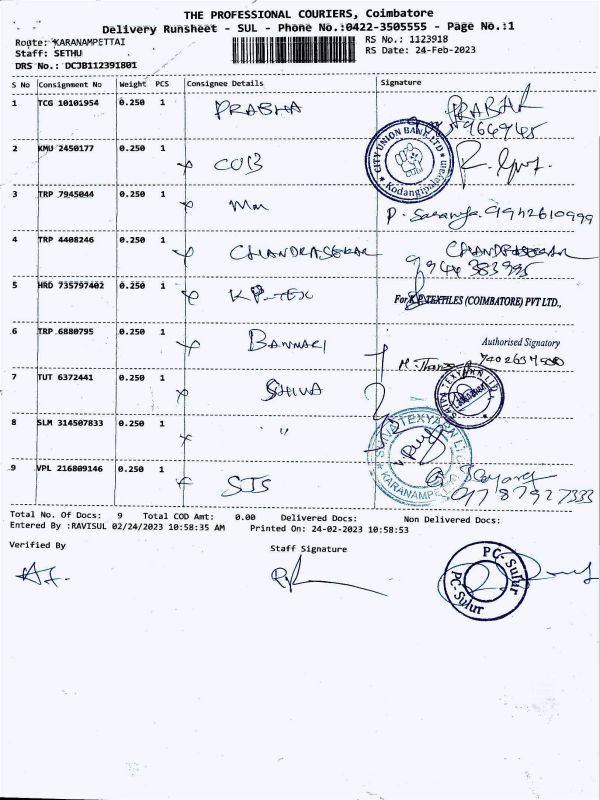 THE PROFESSIONAL COURIERS, Coimbatore
Delivery Runsheet - SUL - Phone No.:0422-3505555 - Page No.:1
Route: KARANAMPETTAI
RS No.: 1123918
Staff: SETHU
RS Date: 24-Feb-2023
DRS No.: DCJB112391801
S No Consignment No Weight PCS Consignee Details Signature
1 TCG 10101954 0.250 1 PRABHA PRABAK
2 KMU 2450177 0.250 1 CUB CITY UNION BANK LTD Kodangipalayam
3 TRP 7945044 0.250 1 Mm P. Saranya. 9942610999
4 TRP 4408246 0.250 1 CHANDRASEKAR CHANDRASEKAR
9944383995
5 HRD 735797402 0.250 1 KP-TEX For K.P.TEXTILES (COIMBATORE) PVT LTD.,
6 TRP 6880795 0.250 1 BANNARI Authorised Signatory
7 TUT 6372441 0.250 1 SHIVA SHIVA TEXYARN LTD
8 SLM 314507833 0.250 1 " SHIVA TEXYARN LTD KARANAMPE
9 VPL 216809146 0.250 1 SIS
Total No. Of Docs: 9 Total COD Amt: 0.00 Delivered Docs: Non Delivered Docs:
Entered By :RAVISUL 02/24/2023 10:58:35 AM Printed On: 24-02-2023 10:58:53
Verified By
Staff Signature
PC-Sulur
PC-Sulur